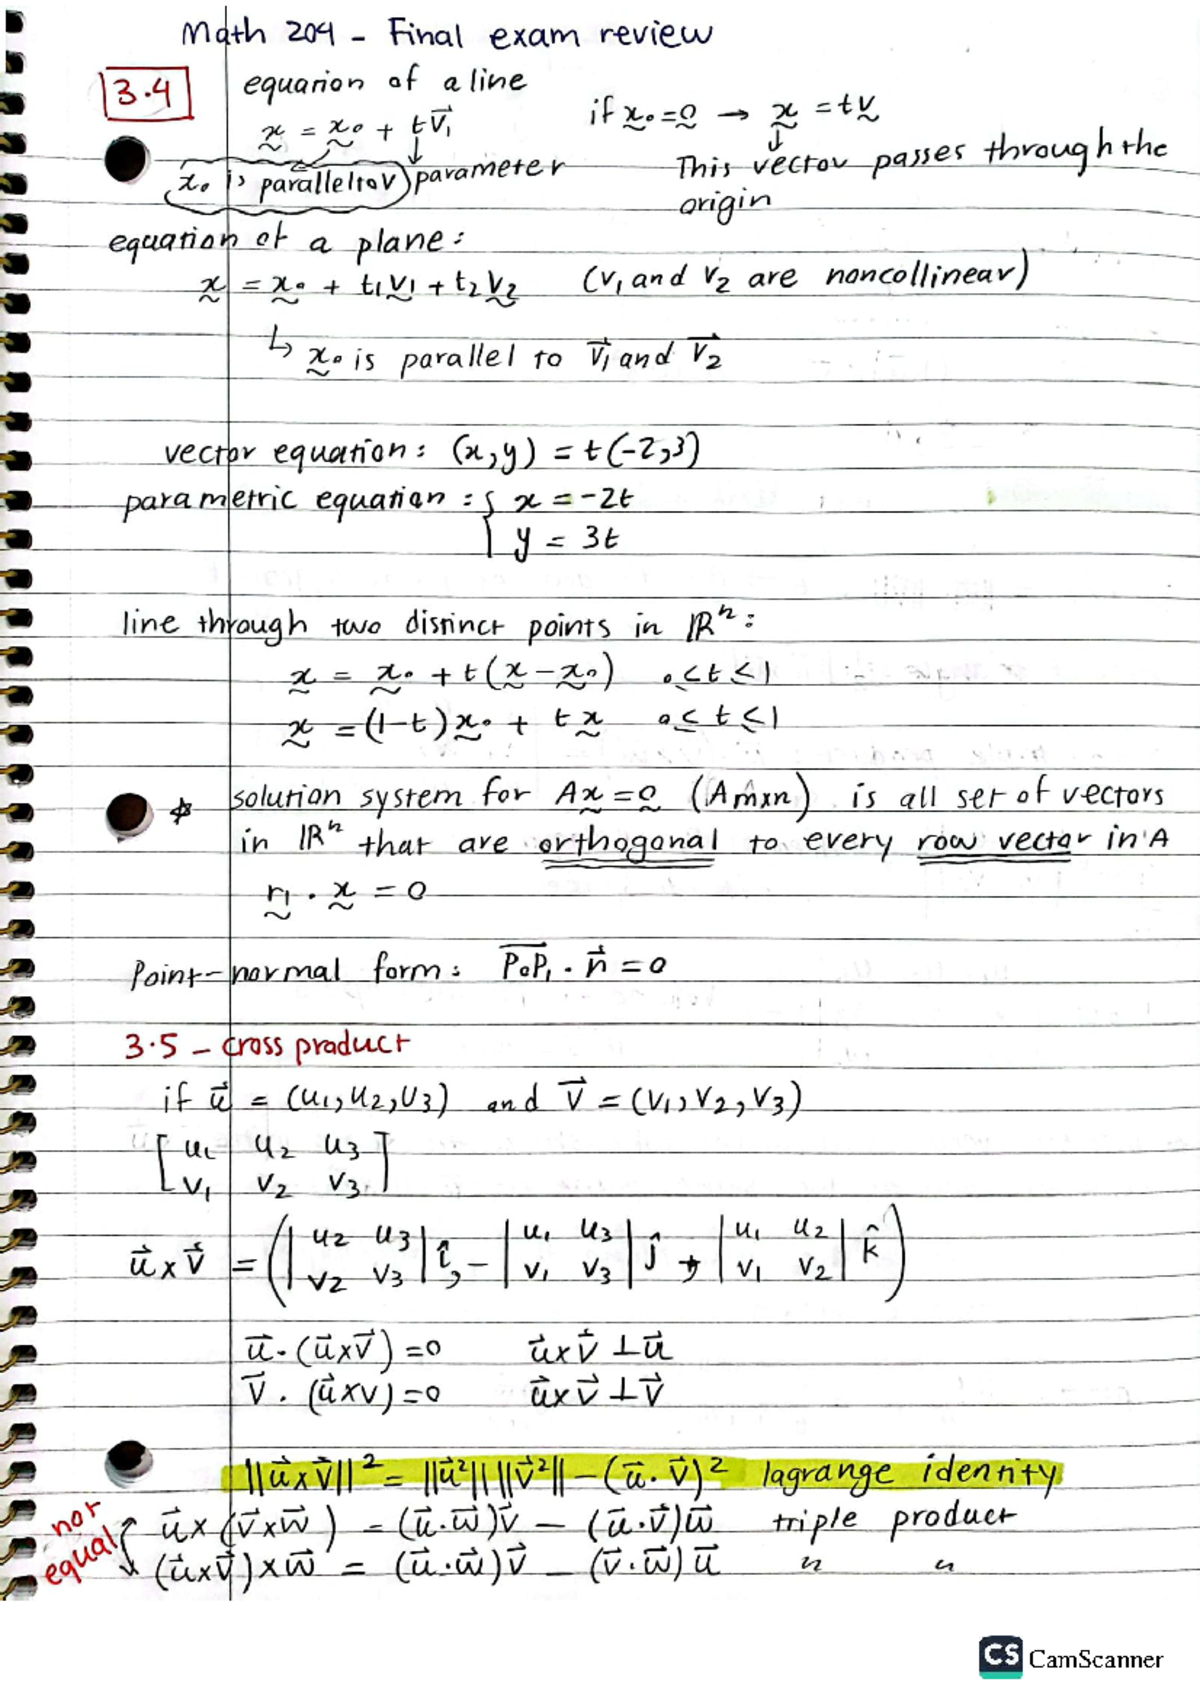 Math 204 - Final exam review
3.4
equation of a line
x = x₀ + t v⃗₁
if x₀ = 0 → x = t v
x₀ is parallel to v
parameter
This vector passes through the
origin
equation of a plane:
x = x₀ + t₁v₁ + t₂v₂ (v₁ and v₂ are noncollinear)
↳ x₀ is parallel to v⃗₁ and v⃗₂
vector equation: (x,y) = t(-2,3)
parametric equation: { x = -2t
y = 3t
line through two distinct points in ℝⁿ:
x = x₀ + t(x - x₀) 0 ≤ t ≤ 1
x = (1-t)x₀ + t x 0 ≤ t ≤ 1
☆ solution system for Ax = 0 (Amxn) is all set of vectors
in ℝⁿ that are orthogonal to every row vector in A
r₁ · x = 0
Point-normal form: P₀P₁ · n⃗ = 0
3.5 - cross product
if u⃗ = (u₁, u₂, u₃) and v⃗ = (v₁, v₂, v₃)
[ u₁ u₂ u₃
v₁ v₂ v₃ ]
u⃗ x v⃗ = ( | u₂ u₃ | î, - | u₁ u₃ | ĵ + | u₁ u₂ | k̂ )
| v₂ v₃ | | v₁ v₃ | | v₁ v₂ |
u⃗ · (u⃗ x v⃗) = 0 u⃗ x v⃗ ⊥ u⃗
v⃗ · (u⃗ x v) = 0 u⃗ x v⃗ ⊥ v⃗
||u⃗ x v⃗||² = ||u⃗²|| ||v⃗²|| - (u⃗ · v⃗)² lagrange identity
not
equal
u⃗ x (v⃗ x w⃗) = (u⃗ · w⃗)v⃗ - (u⃗ · v⃗)w⃗ triple product
(u⃗ x v⃗) x w⃗ = (u⃗ · w⃗)v⃗ - (v⃗ · w⃗)u⃗ " "
CS CamScanner